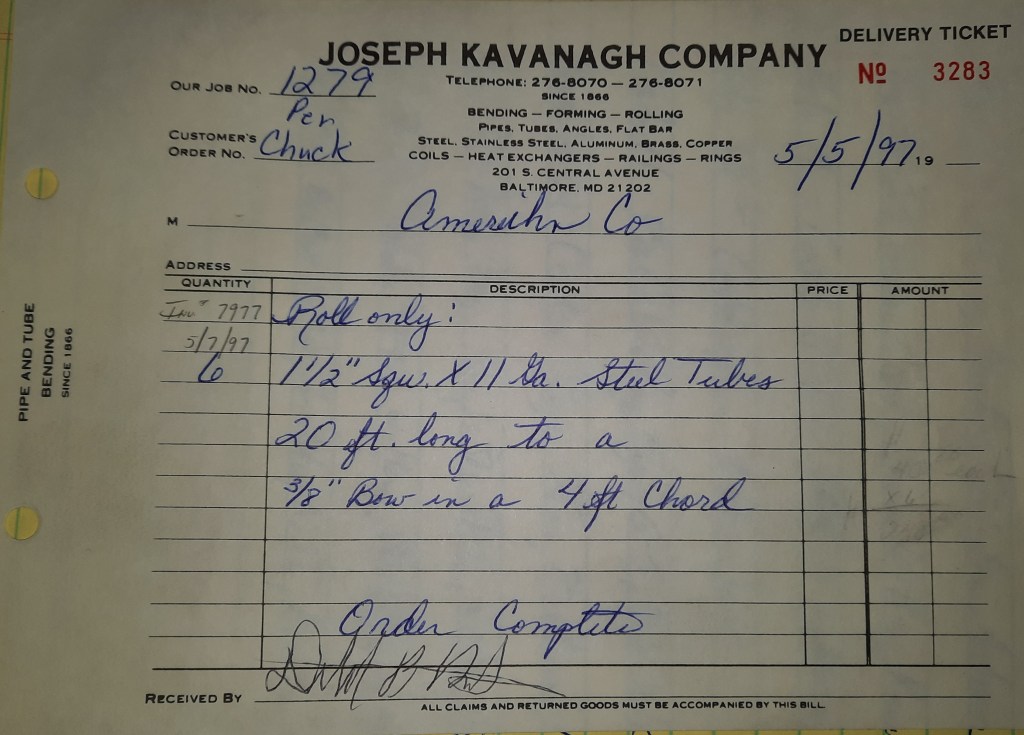 DELIVERY TICKET
JOSEPH KAVANAGH COMPANY
Nº 3283
OUR JOB NO. 1279
TELEPHONE: 276-8070 — 276-8071
SINCE 1866
Per
BENDING — FORMING — ROLLING
PIPES, TUBES, ANGLES, FLAT BAR
CUSTOMER'S ORDER NO. Chuck
STEEL, STAINLESS STEEL, ALUMINUM, BRASS, COPPER
COILS — HEAT EXCHANGERS — RAILINGS — RINGS
5/5/97 19
201 S. CENTRAL AVENUE
BALTIMORE, MD 21202
M Co
ADDRESS
QUANTITY DESCRIPTION PRICE AMOUNT
Inv # 7977 Roll only:
5/7/97
6 1 1/2" Squ. X 11 Ga. Steel Tubes
20 ft. long to a
3/8" Bow in a 4 ft Chord
Order Complete
RECEIVED BY
ALL CLAIMS AND RETURNED GOODS MUST BE ACCOMPANIED BY THIS BILL
PIPE AND TUBE
BENDING
SINCE 1866